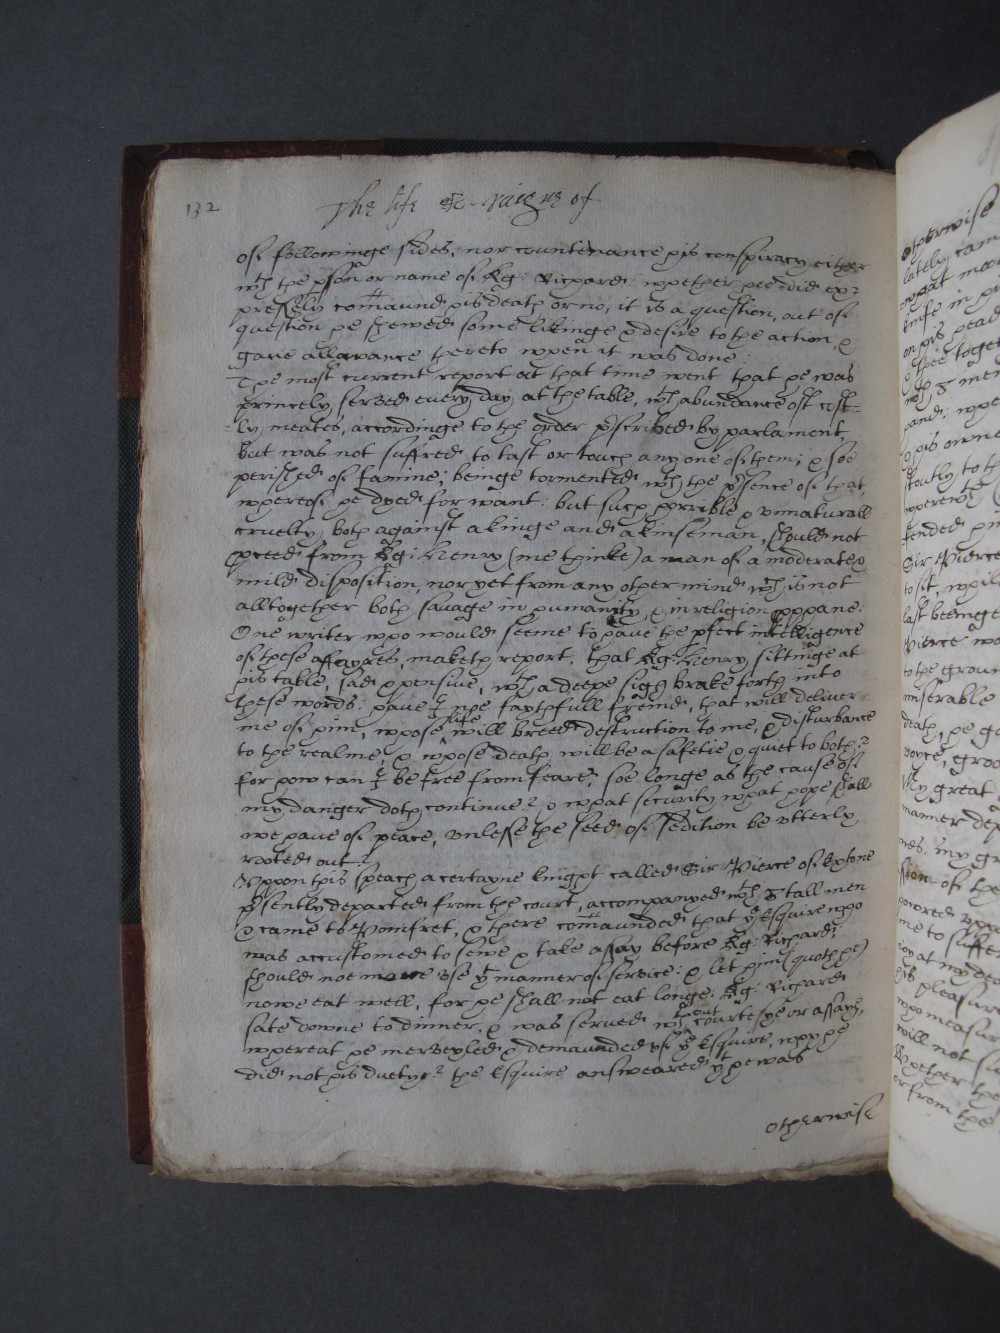 132
The life & raigne of
of followinge sides, nor countenance his conspiracy either
wth the pson or name of Kg: Richard: whether hee did ex=
pressely comaund his death or no, it is a question, out of
question he shewed some likinge & desire to the action, &
gave allowance thereto when it was done:
The most current report at that time went that he was
princely served every day at the table, wth abundance of cost=
=ly meates, accordinge to the order pscribed by parlament
but was not suffred to tast or touch any one of them; & soe
perished of famine; beinge tormented wth the psence of that,
whereof he dyed for want: but such horrible & unnaturall
cruelty both against a kinge and a kinseman, should not
pceed from Kg: Henry (me thinke) a man of a moderate &
mild disposition, nor yet from any other mind wch is not
alltogether both savage in humanity, & in religion prophane.
One writer who would seeme to have the pfect intelligence
of these affayres, maketh report, that Kg: Henry sittinge at
his table, sad & pensive, wth a deepe sigh brake forth into
these words: have I noe faythfull freind, that will deliver
me of him, whose life will breed destruction to me, & disturbance
to the realme, & whose death will be a safetie & quiet to both?
for how can I be free from feare, soe longe as the cause of
my danger doth continue? & what security what hope shall
we have of peace, unlesse the seed of sedition be utterly
rooted out?
Uppon this speach a certayne knight called Sir Pierce of Extone
psently departed from the court, accompanyed wth 8 tall men
& came to Pomfret, & there comaunded that ye Esquire who
was accustomed to sewe & take assay before Kg: Richard;
should noe more use yt manner of service: & let him (quoth he)
nowe eat well, for he shall not eat longe. Kg: Richard
sate downe to dinner, & was served wthout courtesye or assaye,
whereat he mervayled & demaunded of ye Esquire, why he
did not his duetye? the Esquire answeared yt he was
otherwise
otherwise
lately